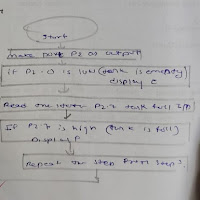 Start
make port P2 as output
if P2.0 is low (tank is empty)
display E
Read the water P2.7 tank full
If P2.7 is high (tank is full)
Display F
Repeat the step from step 3.